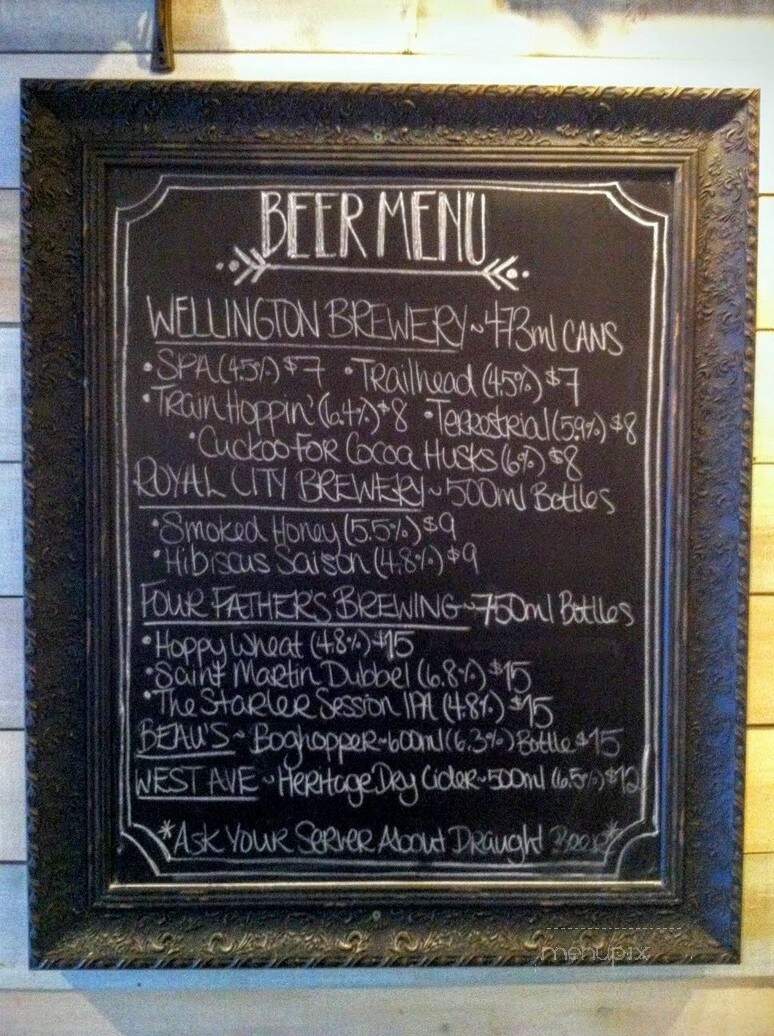 BEER MENU
WELLINGTON BREWERY ~ 473ml CANS
• SPA (4.5%) $7 • Trailhead (4.5%) $7
• Train Hoppin' (6.4%) $8 • Terrestrial (5.9%) $8
• Cuckoo For Cocoa Husks (6%) $8
ROYAL CITY BREWERY ~ 500ml Bottles
• Smoked Honey (5.5%) $9
• Hibiscus Saison (4.8%) $9
FOUR FATHER'S BREWING ~ 750ml Bottles
• Hoppy Wheat (4.8%) $15
• Saint Martin Dubbel (6.8%) $15
• The Starter Session IPA (4.8%) $15
BEAU'S ~ Boghopper ~ 600ml (6.3%) Bottle $15
WEST AVE ~ Heritage Dry Cider ~ 500ml (6.5%) $12
*Ask Your Server About Draught Beer*
menupix